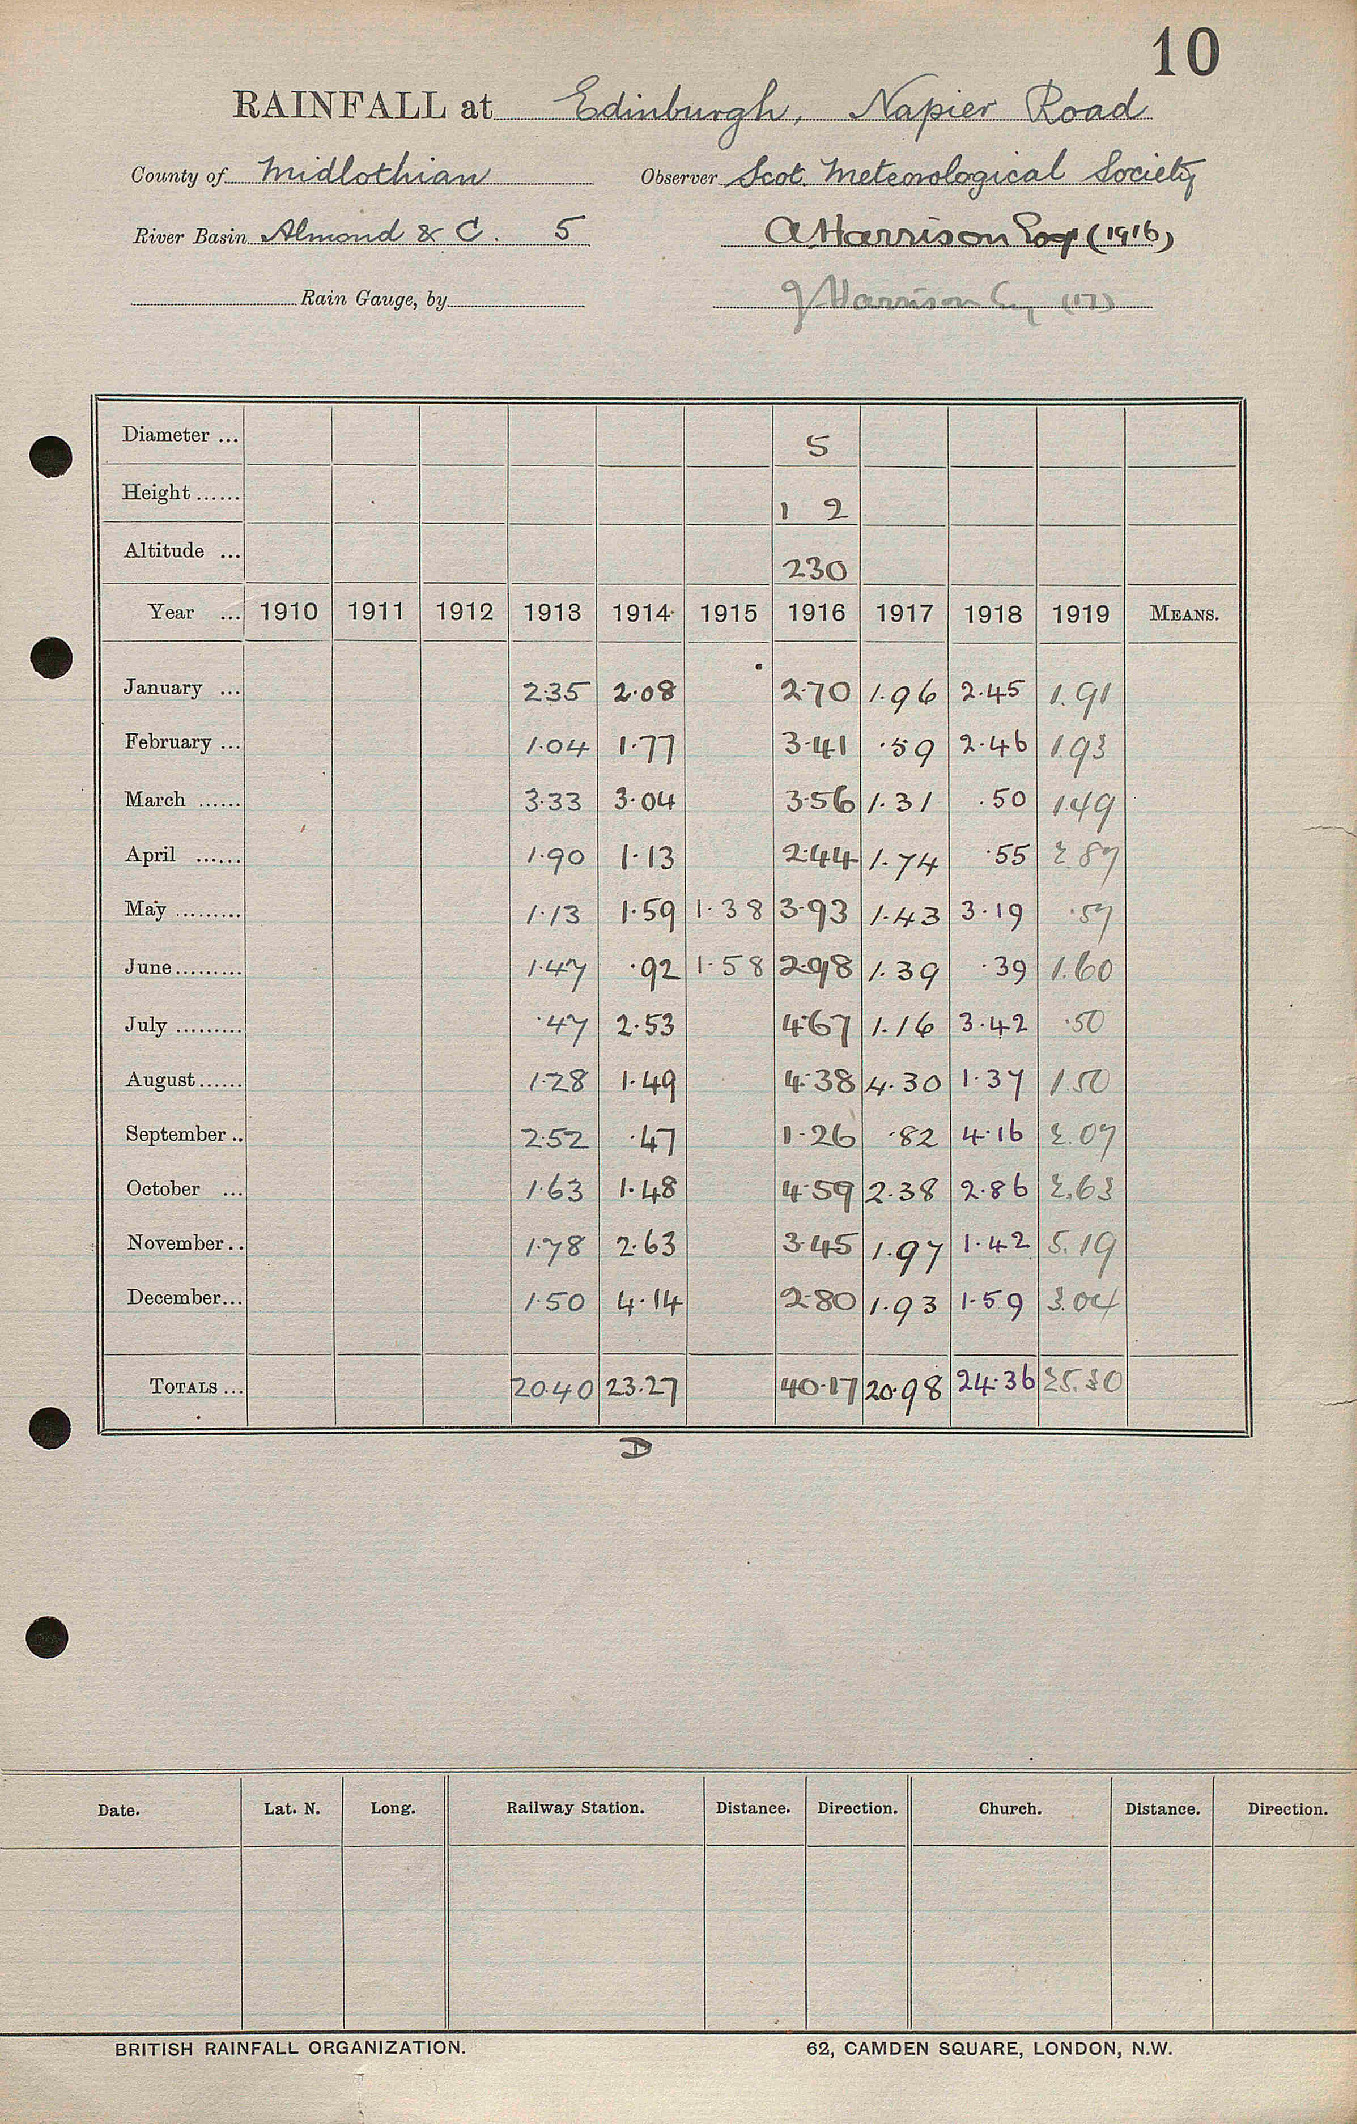 10
RAINFALL at Edinburgh, Napier Road
County of Midlothian Observer Scot. Meteorological Society
River Basin Almond & C. 5 A Harrison Esq (1916)
Rain Gauge, by J Harrison Esq (17)
Diameter ... 5
Height ...... 1 2
Altitude ... 230
Year ... 1910 1911 1912 1913 1914 1915 1916 1917 1918 1919 MEANS.
January ... 2.35 2.08 2.70 1.96 2.45 1.91
February ... 1.04 1.77 3.41 .59 2.46 1.93
March ...... 3.33 3.04 3.56 1.31 .50 1.49
April ...... 1.90 1.13 2.44 1.74 .55 2.87
May ......... 1.13 1.59 1.38 3.93 1.43 3.19 .57
June......... 1.47 .92 1.58 2.98 1.39 .39 1.60
July ......... .47 2.53 4.67 1.16 3.42 .50
August...... 1.28 1.49 4.38 4.30 1.37 1.50
September .. 2.52 .47 1.26 .82 4.16 2.07
October ... 1.63 1.48 4.59 2.38 2.86 2.63
November .. 1.78 2.63 3.45 1.97 1.42 5.19
December... 1.50 4.14 2.80 1.93 1.59 3.04
TOTALS ... 20.40 23.27 40.17 20.98 24.36 25.30
D
Date. Lat. N. Long. Railway Station. Distance. Direction. Church. Distance. Direction.
BRITISH RAINFALL ORGANIZATION. 62, CAMDEN SQUARE, LONDON, N.W.